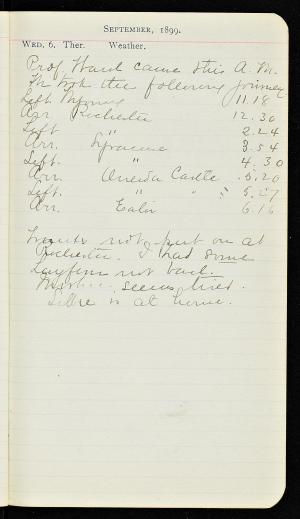 SEPTEMBER, 1899.
WED, 6. Ther. Weather.
Prof Ward came this A. M.
We took the following journey
Left Wyoming 11.18
Arr. Rochester 12.30
Left " 2.24
Arr. Syracuse 3.54
Left. " 4.30
Arr. Oneida Castle 5.20
Left. " " 5.27
Arr. Eaton 6.16
Trunks not put on at
Rochester. I had some
not bad.
seems tired.
is at home.